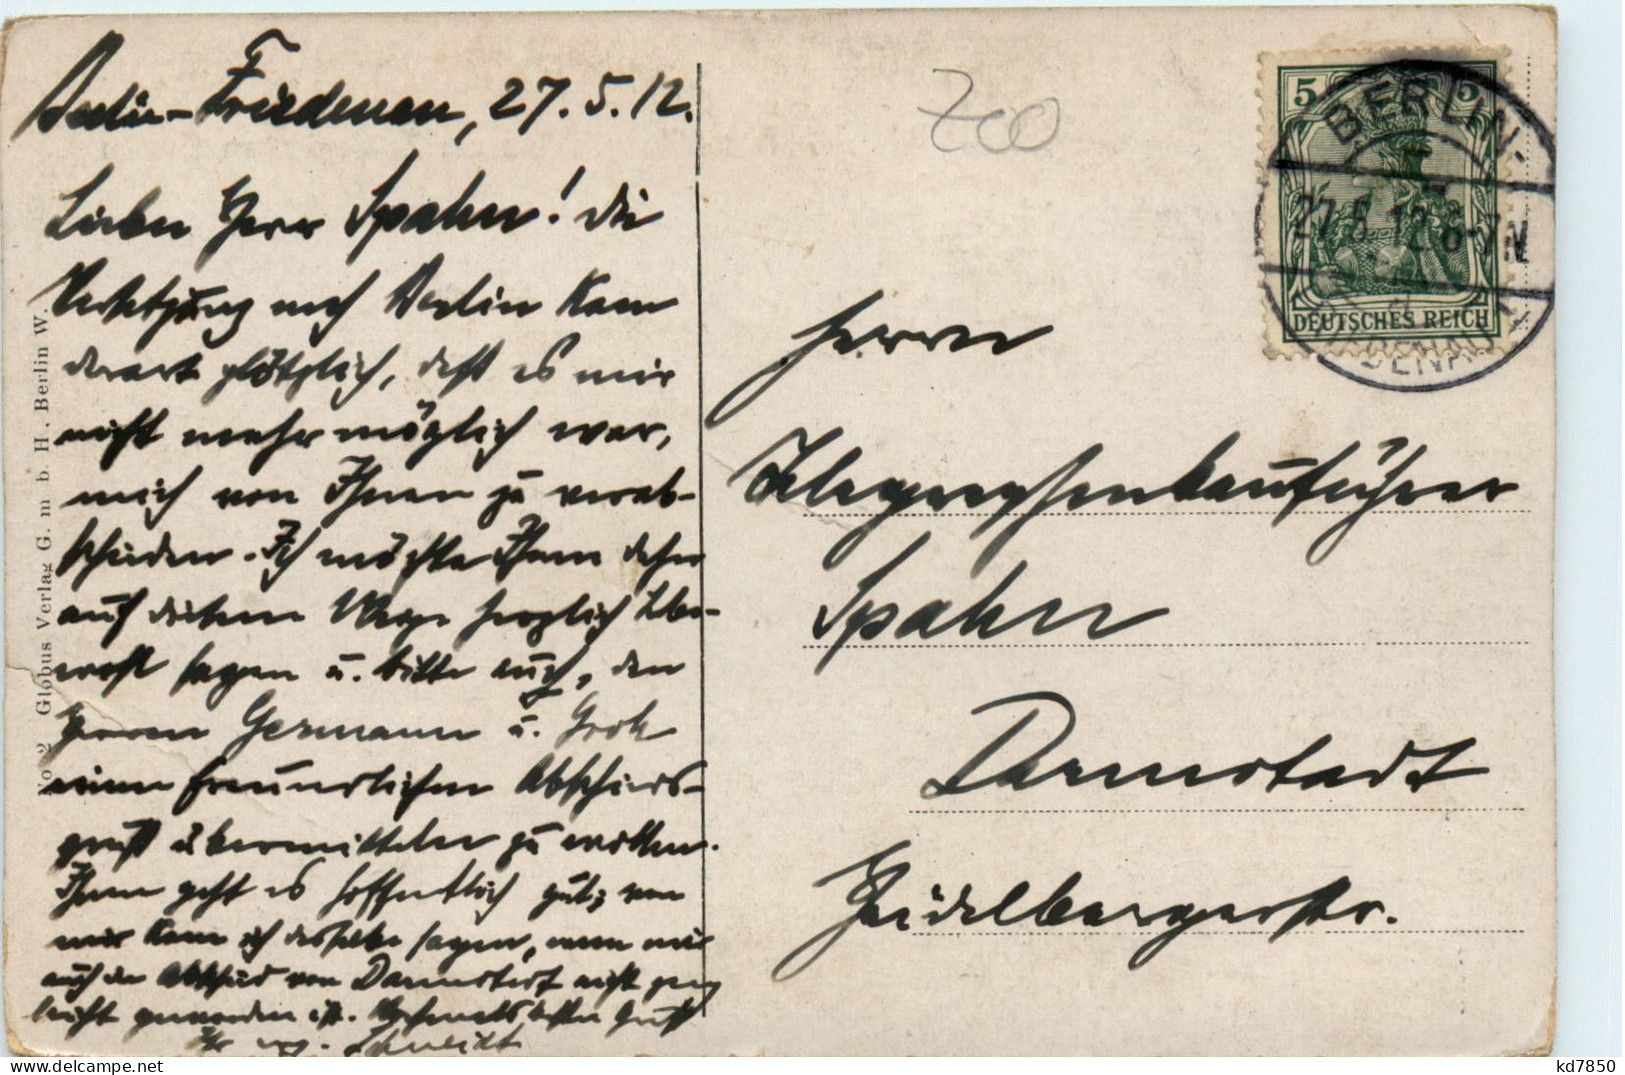 Berlin-Friedenau, 27.5.12.
Lieber Herr Spahn! Die
Versetzung nach Berlin kam
derart plötzlich, daß es mir
nicht mehr möglich war,
mich von Ihnen zu verab-
schieden. Ich möchte Ihnen daher
auf diesem Wege herzlich Lebe-
wohl sagen u. bitte auch, den
Herren Germann u. Groh
einen freundlichen Abschieds-
gruß übermitteln zu wollen.
Ihnen geht es hoffentlich gut; von
mir kann ich dasselbe sagen, wenn mir
auch der Abschied von Darmstadt nicht ganz
leicht geworden ist. Nochmals besten Gruß
Ihr erg. Schmidt
No 2 Globus Verlag G. m. b. H. Berlin W.
Zoo
5 5
DEUTSCHES REICH
BERLIN-
27.5.12.6-7N
FRIEDENAU
Herrn
Telegraphenbauführer
Spahn
Darmstadt
Heidelbergerstr.
kd7850